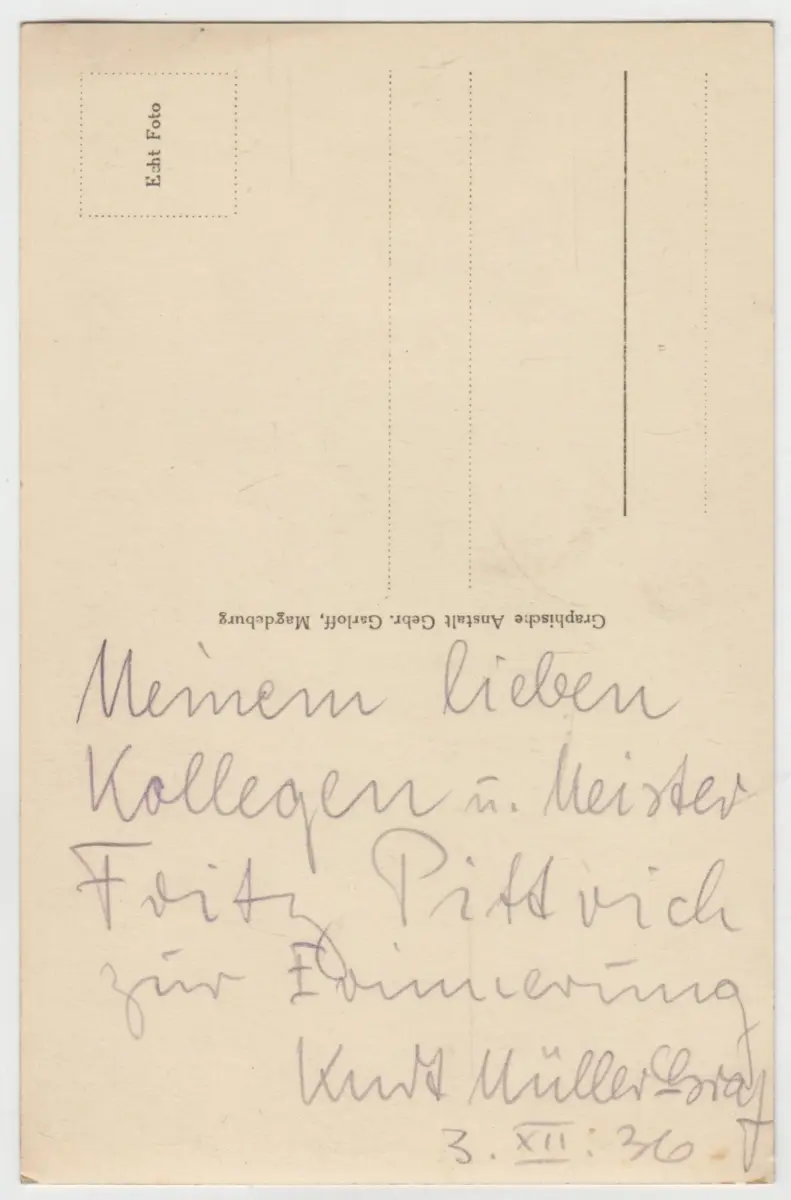 Echt Foto
Graphische Anstalt Gebr. Garloff, Magdeburg
Meinem lieben
Kollegen u. Meister
Fritz Pittrich
zur Erinnerung
Kurt Müller-Graf
3. XII: 36.